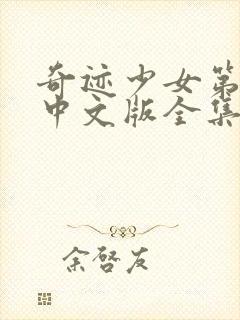 奇迹少女第
中文版全集
余啓友